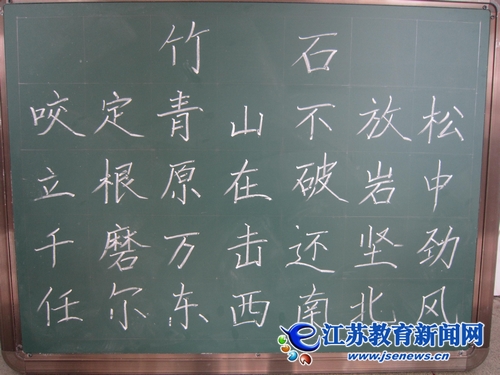 竹石
咬定青山不放松
立根原在破岩中
千磨万击还坚劲
任尔东西南北风
江苏教育新闻网
www.jsenews.cn